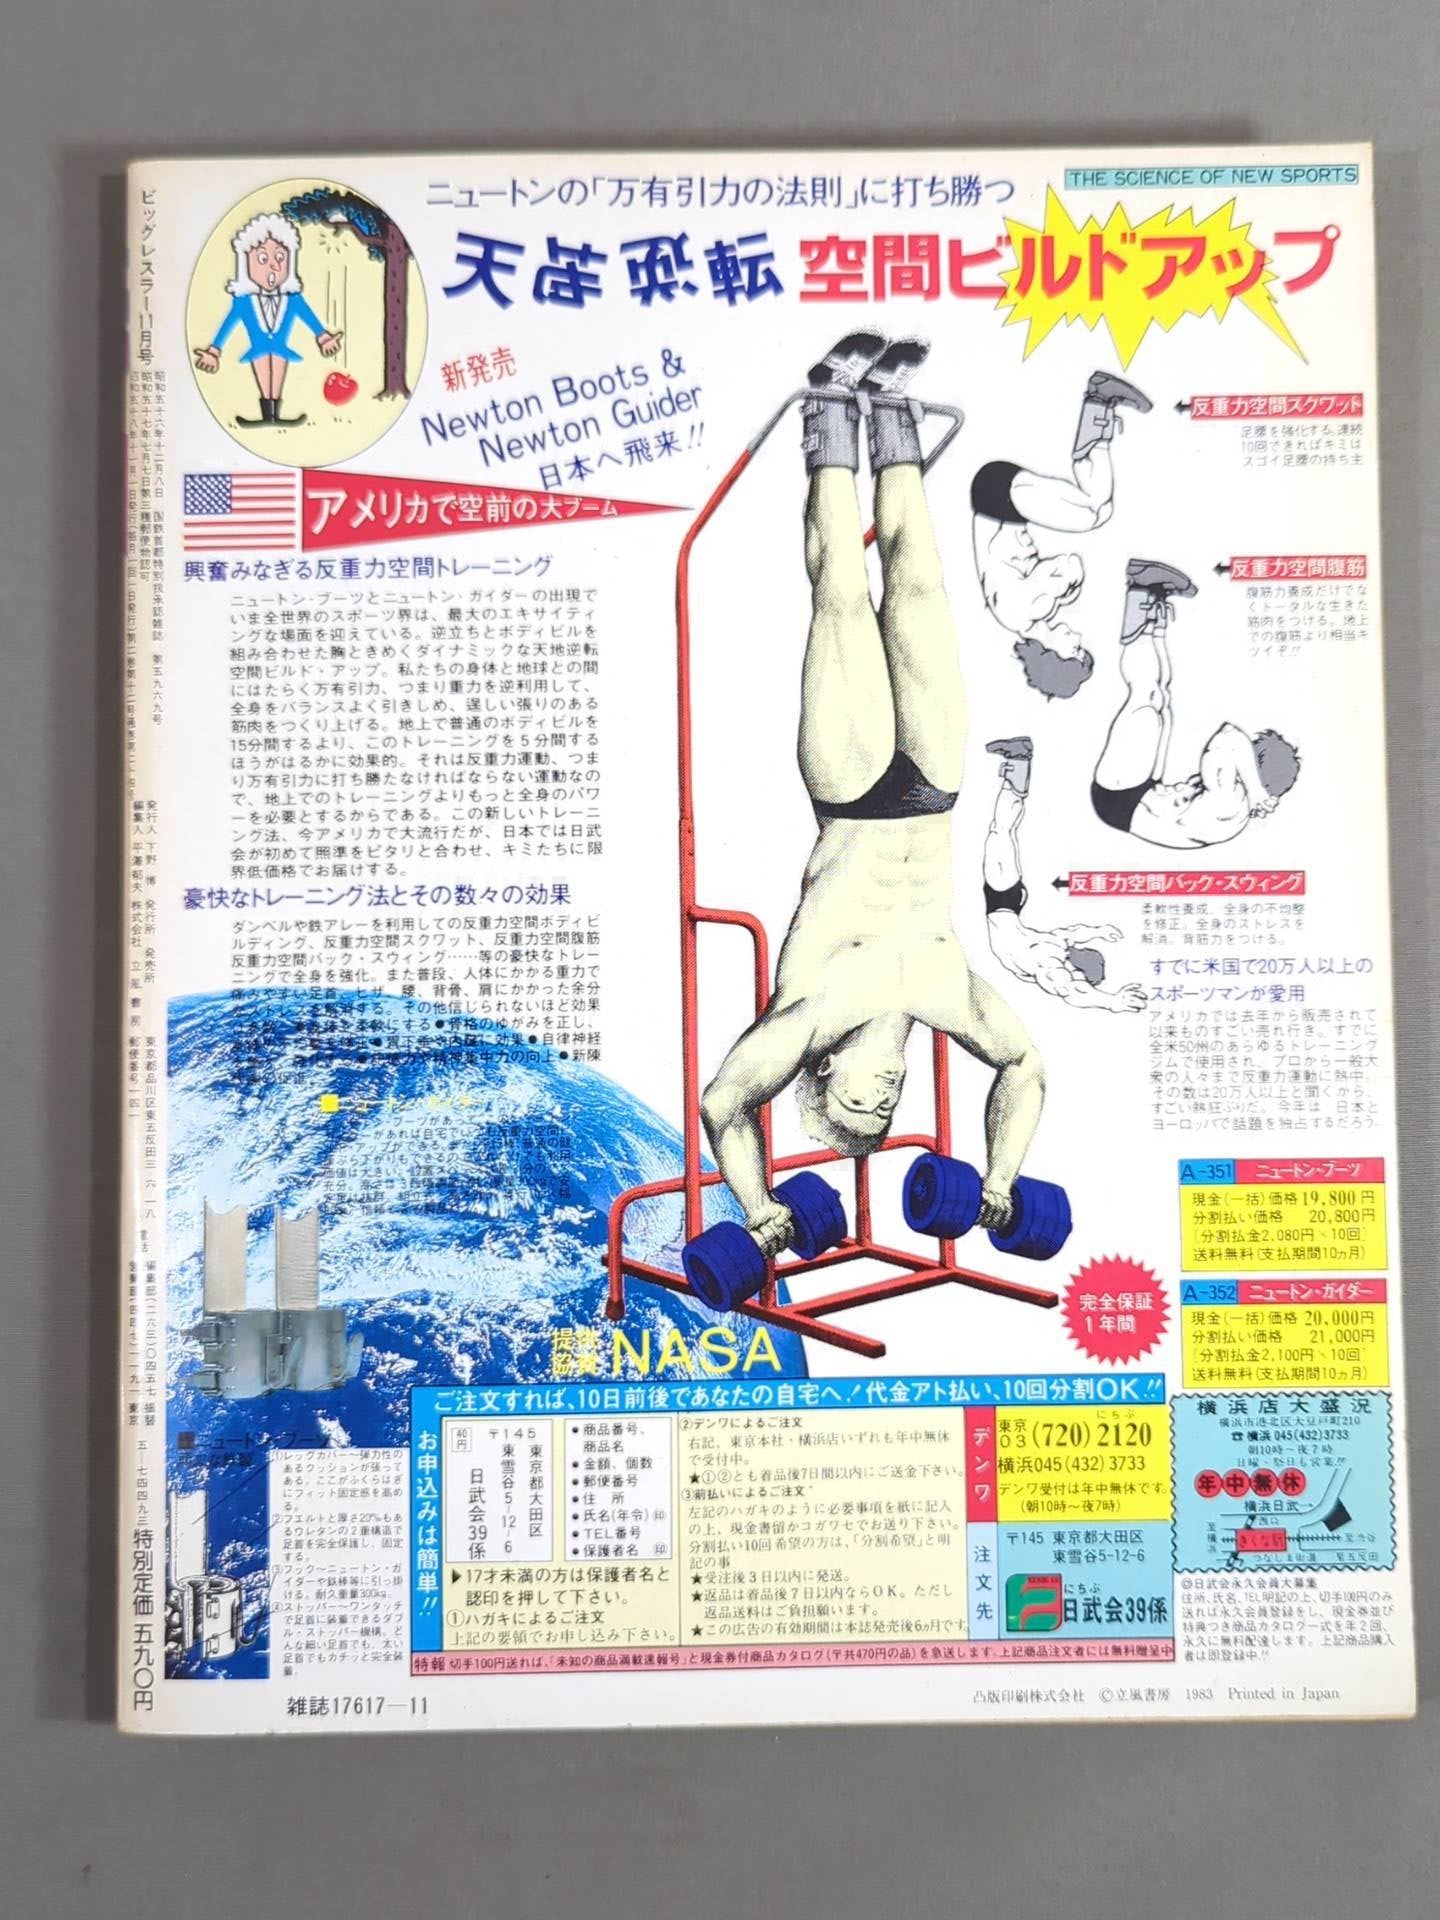 THE SCIENCE OF NEW SPORTS
ニュートンの「万有引力の法則」に打ち勝つ
天地逆転 空間ビルドアップ
新発売
Newton Boots &
Newton Guider
日本へ飛来!!
アメリカで空前の大ブーム
興奮みなぎる反重力空間トレーニング
ニュートン・ブーツとニュートン・ガイダーの出現で
いま全世界のスポーツ界は、最大のエキサイティ
ングな場面を迎えている。逆立ちとボディビルを
組み合わせた胸ときめくダイナミックな天地逆転
空間ビルド・アップ。私たちの身体と地球との間
にはたらく万有引力、つまり重力を逆利用して、
全身をバランスよく引きしめ、逞しい張りのある
筋肉をつくり上げる。地上で普通のボディビルを
15分間するより、このトレーニングを5分間する
ほうがはるかに効果的。それは反重力運動、つま
り万有引力に打ち勝たなければならない運動なの
で、地上でのトレーニングよりもっと全身のパワ
ーを必要とするからである。この新しいトレーニ
ング法、今アメリカで大流行だが、日本では日武
会が初めて照準をピタリと合わせ、キミたちに限
界低価格でお届けする。
豪快なトレーニング法とその数々の効果
ダンベルや鉄アレーを利用しての反重力空間ボディビ
ルディング、反重力空間スクワット、反重力空間腹筋
反重力空間バック・スウィング……等の豪快なトレー
ニングで全身を強化。また普段、人体にかかる重力で
痛みやすい足首、ヒザ、腰、背骨、肩にかかった余分
なストレスを解消する。その他信じられないほど効果
●骨格のゆがみを正し、
●胃下垂や内臓に効果●自律神経
精神集中力の向上●新陳
反重力空間スクワット
足腰を強化する。連続
10回できればキミは
スゴイ足腰の持ち主
反重力空間腹筋
腹筋力養成だけでな
くトータルな生きた
筋肉をつける。地上
での腹筋より相当キ
ツイぞ!!
反重力空間バック・スウィング
柔軟性養成、全身の不均整
を修正。全身のストレスを
解消。背筋力をつける。
すでに米国で20万人以上の
スポーツマンが愛用
アメリカでは去年から販売されて
以来ものすごい売れ行き。すでに
全米50州のあらゆるトレーニング
ジムで使用され、プロから一般大
衆の人々まで反重力運動に熱中。
その数は20万人以上と聞くから、
すごい熱狂ぶりだ。今年は、日本と
ヨーロッパで話題を独占するだろう。
A-351 ニュートン・ブーツ
現金(一括)価格19,800円
分割払い価格 20,800円
[分割払金2,080円×10回]
送料無料(支払期間10ヵ月)
A-352 ニュートン・ガイダー
現金(一括)価格 20,000円
分割払い価格 21,000円
[分割払金2,100円×10回]
送料無料(支払期間10ヵ月)
完全保証
1年間
NASA
①レッグカバー〜弾力性の
あるクッションが張って
あり、ここがふくらはぎ
にフィット固定感を高め
る。
②フエルトと厚さ20%もあ
るウレタンの2重構造で
足首を完全保護し、固定
する。
③フック〜ニュートン・ガ
イダーや鉄棒等に引っ掛
ける。耐久重量300kg。
④ストッパー〜ワンタッチ
で足首に装着できるダブ
ル・ストッパー機構。ど
んな細い足首でも、太い
足首でもカチッと完全装
着。
ご注文すれば、10日前後であなたの自宅へ!代金アト払い、10回分割OK!!
お申込みは簡単!!
40円
〒145
東京都大田区
東雪谷5-12-6
日武会39係
●商品番号、
商品名
●金額、個数
●郵便番号
●住 所
●氏名(年令)印
●TEL番号
●保護者名 印
▶17才未満の方は保護者名と
認印を押して下さい。
①ハガキによるご注文
上記の要領でお申し込み下さい。
②デンワによるご注文
右記、東京本社・横浜店いずれも年中無休
で受付中。
★①②とも着品後7日間以内にご送金下さい。
③前払いによるご注文
左記のハガキのように必要事項を紙に記入
の上、現金書留かコガワセでお送り下さい。
分割払い10回希望の方は、「分割希望」と明
記の事
★受注後3日以内に発送。
★返品は着品後7日以内ならOK。ただし
返品送料はご負担願います。
★この広告の有効期間は本誌発売後6ヵ月です。
デンワ
東京03(720)2120
にちぶ
横浜045(432)3733
デンワ受付は年中無休です。
(朝10時〜夜7時)
注文先
〒145 東京都大田区
東雪谷5-12-6
にちぶ
日武会39係
特報 切手100円送れば、「未知の商品満載速報号」と現金券付商品カタログ(〒共470円の品)を急送します。上記商品注文者には無料贈呈中
横浜店大盛況
横浜市港北区大豆戸町210
☎横浜045(432)3733
朝10時〜夜7時
日曜・祭日も営業!!
年中無休
横浜日武
西口
至横浜
きくな駅
至渋谷
つなしま街道
至五反田
◎日武会永久会員大募集
住所、氏名、TEL明記の上、切手100円のみ
送れば永久会員登録をし、現金券並び
特典つき商品カタログ一式を年2回、
永久に無料配達します。上記商品購入
者は即登録中!!
雑誌17617-11
凸版印刷株式会社 ©立風書房 1983 Printed in Japan
ビッグレスラー11月号
昭和五十六年十二月八日 国鉄首都特別扱承認雑誌 第五九六九号
昭和五十七年七月七日第三種郵便物認可
発行人 下野 博
編集人 平澤郁夫
発行所 発売所
株式会社 立風書房
東京都品川区東五反田三-六-一八
郵便番号一四一
特別定価 五九〇円